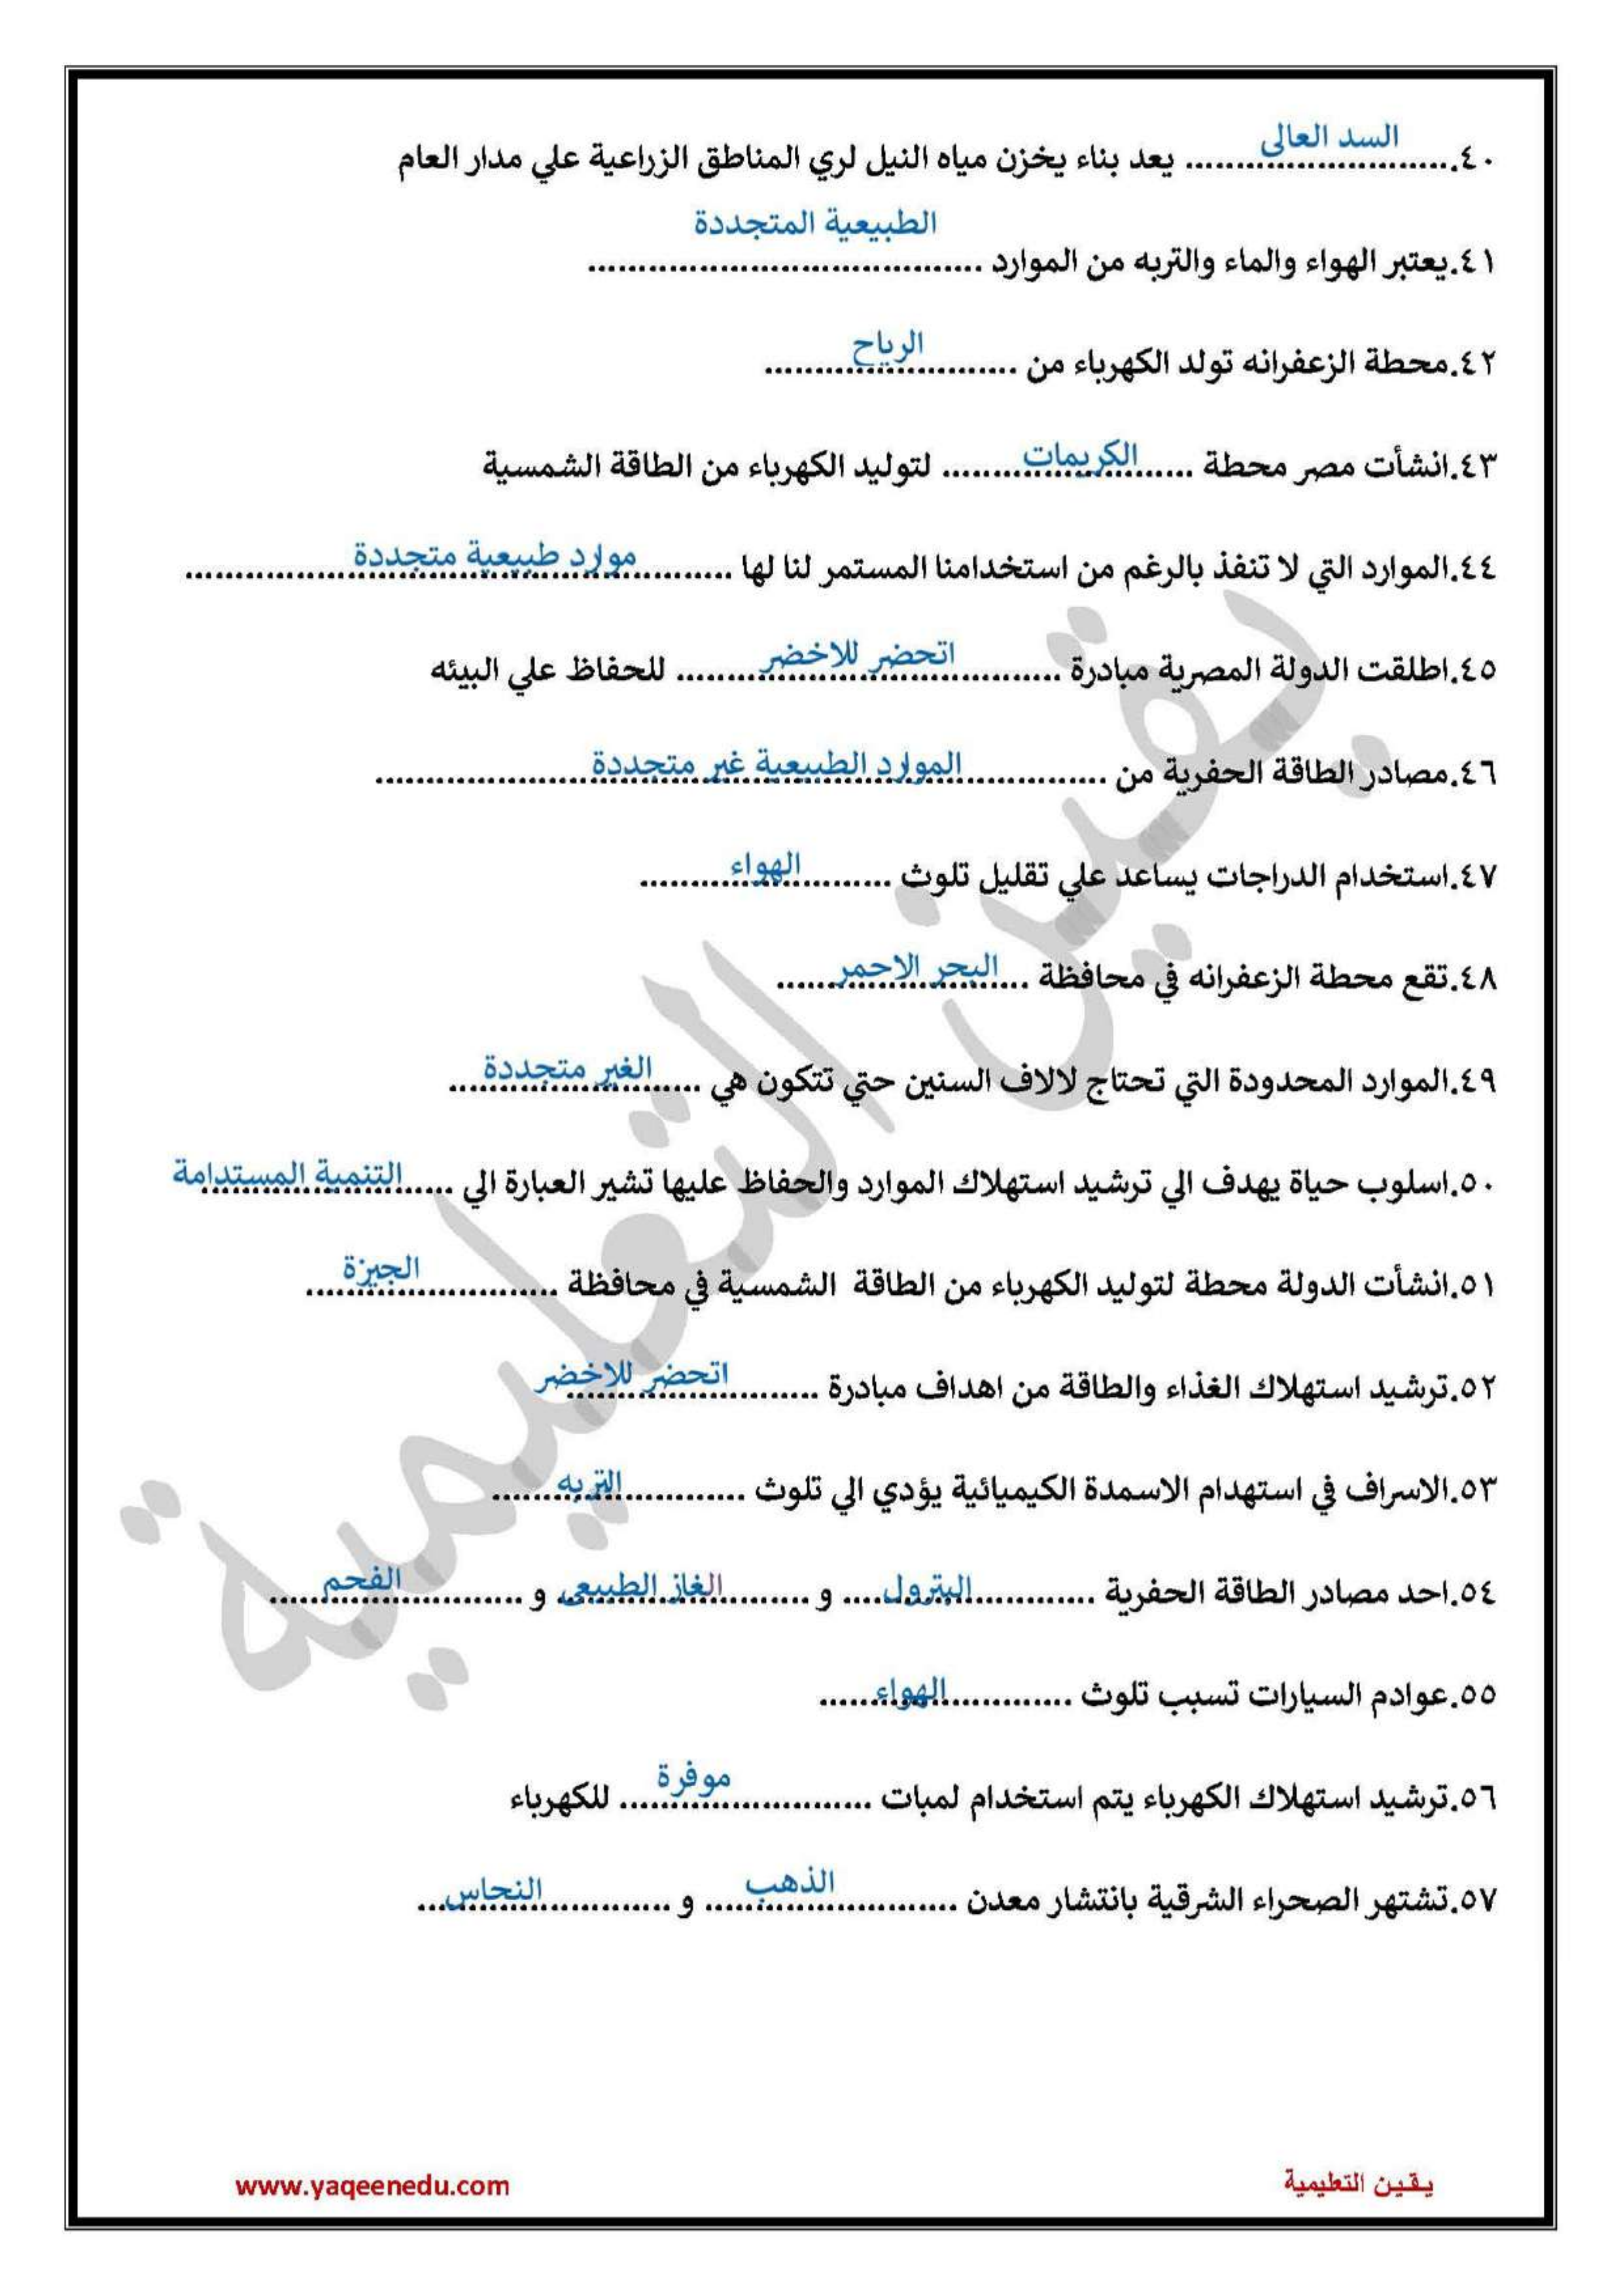 ٤٠.......السد العالى....... يعد بناء يخزن مياه النيل لري المناطق الزراعية علي مدار العام
٤١.يعتبر الهواء والماء والتربه من الموارد .......الطبيعية المتجددة.......
٤٢.محطة الزعفرانه تولد الكهرباء من .......الرياح.......
٤٣.انشأت مصر محطة .......الكريمات....... لتوليد الكهرباء من الطاقة الشمسية
٤٤.الموارد التي لا تنفذ بالرغم من استخدامنا المستمر لنا لها .......موارد طبيعية متجددة.......
٤٥.اطلقت الدولة المصرية مبادرة .......اتحضر للاخضر....... للحفاظ علي البيئه
٤٦.مصادر الطاقة الحفرية من .......الموارد الطبيعية غير متجددة.......
٤٧.استخدام الدراجات يساعد علي تقليل تلوث .......الهواء.......
٤٨.تقع محطة الزعفرانه في محافظة .......البحر الاحمر.......
٤٩.الموارد المحدودة التي تحتاج لالاف السنين حتي تتكون هي .......الغير متجددة.......
٥٠.اسلوب حياة يهدف الي ترشيد استهلاك الموارد والحفاظ عليها تشير العبارة الي .......التنمية المستدامة
٥١.انشأت الدولة محطة لتوليد الكهرباء من الطاقة الشمسية في محافظة .......الجيزة.......
٥٢.ترشيد استهلاك الغذاء والطاقة من اهداف مبادرة .......اتحضر للاخضر
٥٣.الاسراف في استهدام الاسمدة الكيميائية يؤدي الي تلوث .......التربه.......
٥٤.احد مصادر الطاقة الحفرية .......البترول....... و .......الغاز الطبيعى و .......الفحم.......
٥٥.عوادم السيارات تسبب تلوث .......الهواء.......
٥٦.ترشيد استهلاك الكهرباء يتم استخدام لمبات .......موفرة....... للكهرباء
٥٧.تشتهر الصحراء الشرقية بانتشار معدن .......الذهب....... و .......النحاس.......
يقين التعليمية
يقين التعليمية
www.yaqeenedu.com